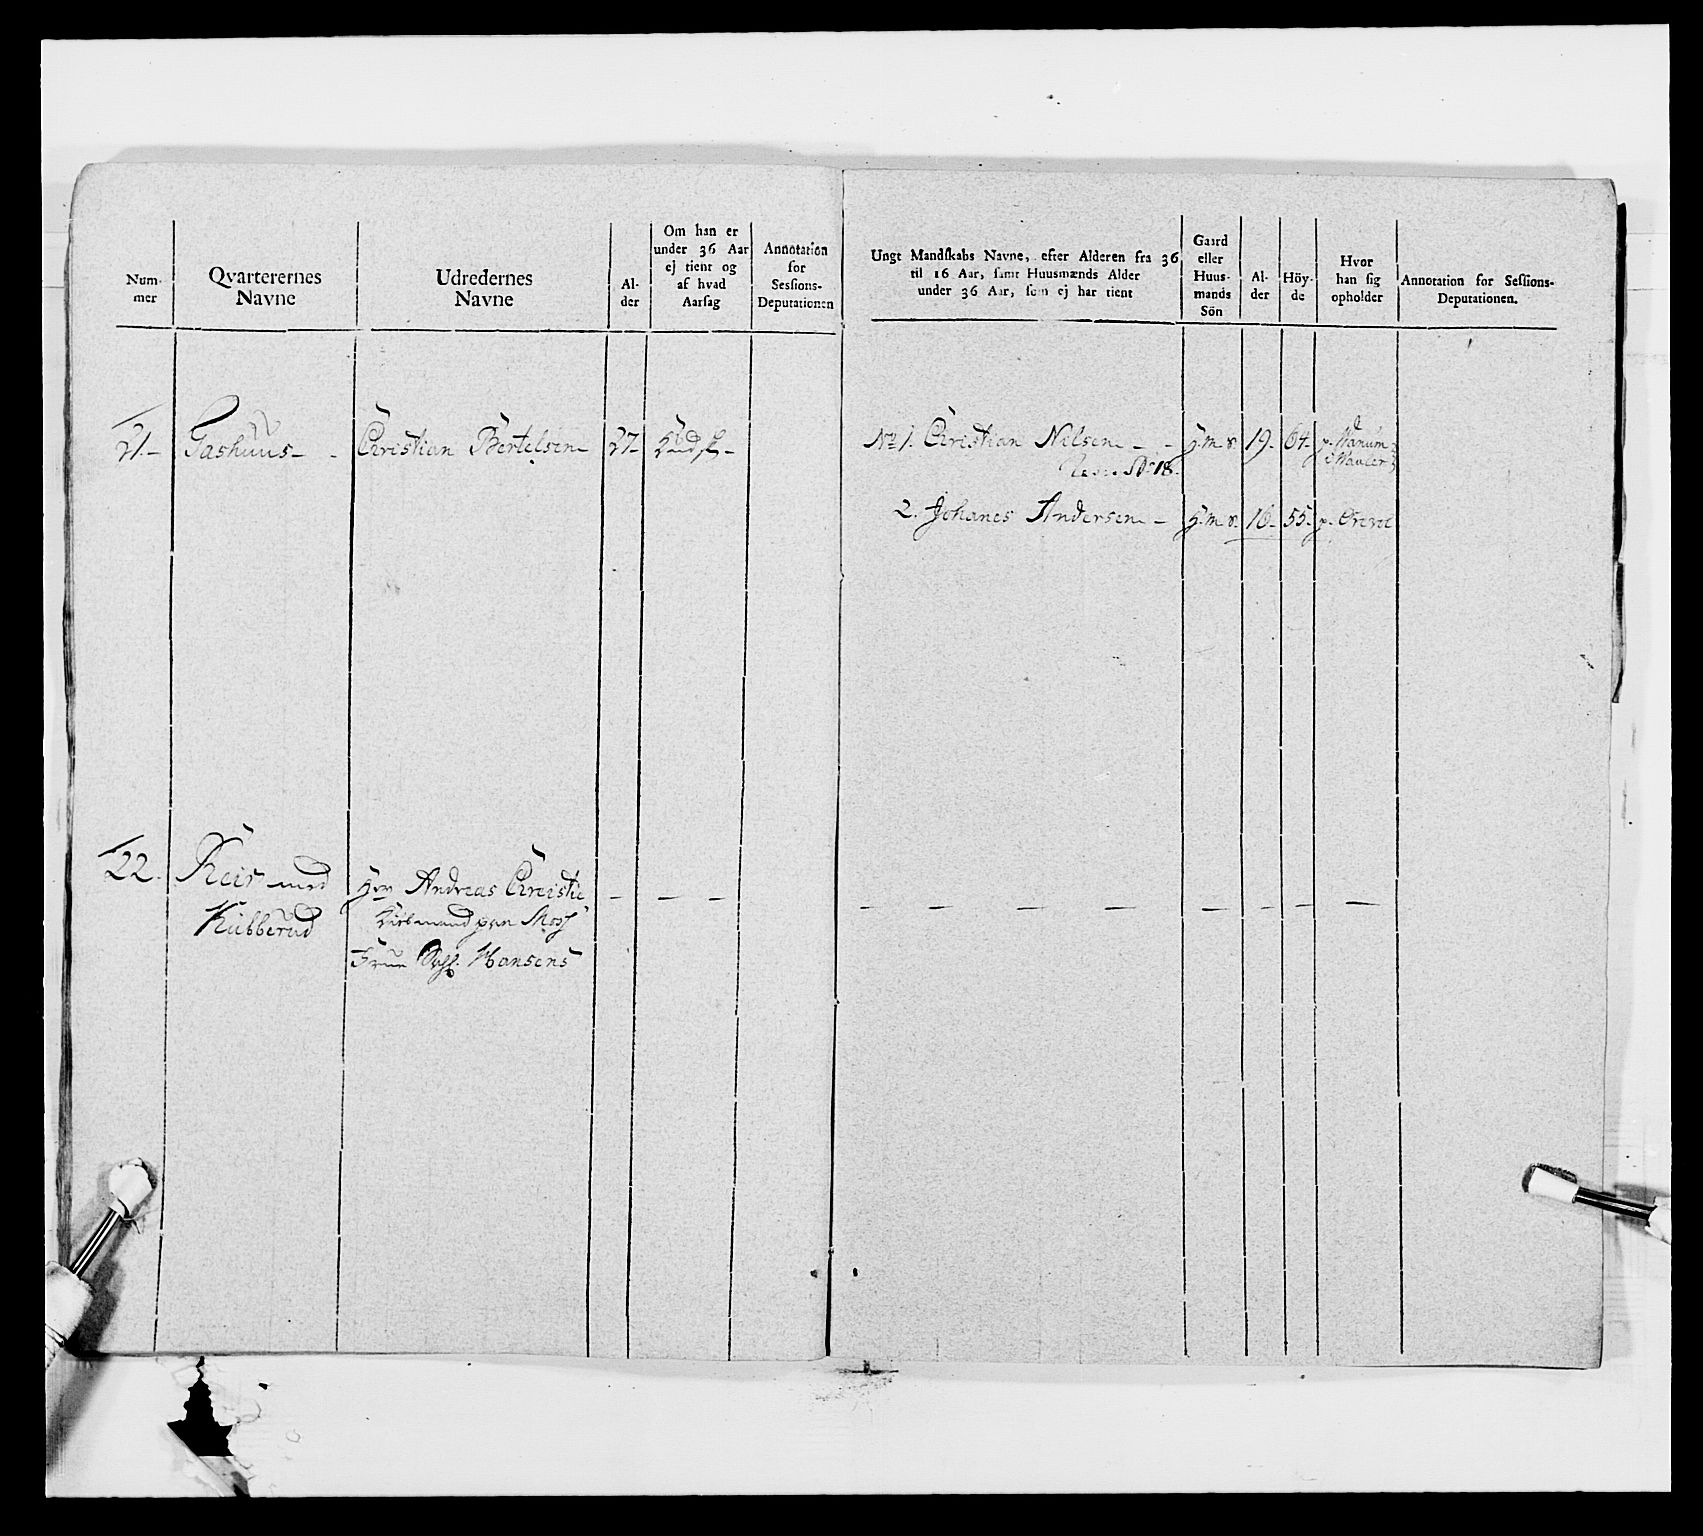 Num-
mer
Qvarterernes
Navne
Udredernes
Navne
Al-
der
Om han er
under 36 Aar
ej tient og
af hvad
Aarsag
Annotation
for
Sessions-
Deputationen
Ungt Mandskabs Navne, efter Alderen fra 36
til 16 Aar, samt Huusmænds Alder
under 36 Aar, som ej har tient
Gaard
eller
Huus-
mands
Sön
Al-
der
Höy-
de
Hvor
han sig
opholder
Annotation for Sessions-
Deputationen.
21. Gashuus Christian Bertelsen 27
No 1. Christian Nilsen H. m. s. 19. 64.
18.
2. Johanes Andersen H. m. s. 16. 55. p.
22. Reir med Hr Andreas Christie
Kubberud Kiöbmand paa Moss
Frue Hansens